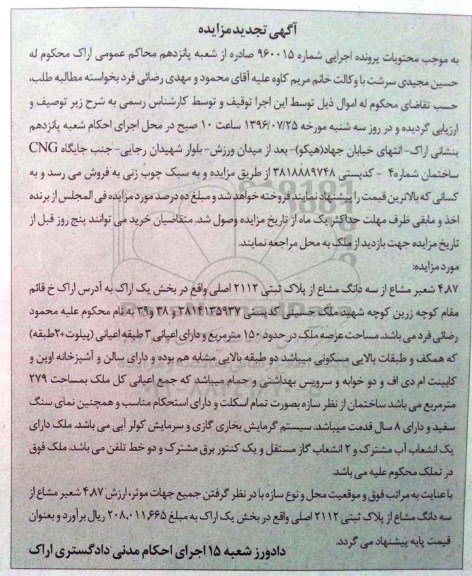 آگهی تجدید مزایده
به موجب محتویات پرونده اجرایی شماره ۹۶۰۰۱۵ صادره از شعبه پانزدهم محاکم عمومی اراک محکوم له
حسین مجیدی سرشت با وکالت خانم مریم کاوه علیه آقای محمود و مهدی رضائی فرد بخواسته مطالبه طلب،
حسب تقاضای محکوم له اموال ذیل توسط این اجرا توقیف و توسط کارشناس رسمی به شرح زیر توصیف و
ارزیابی گردیده و در روز سه شنبه مورخه ۱۳۹۶/۰۷/۲۵ ساعت ۱۰ صبح در محل اجرای احکام شعبه پانزدهم
بنشانی اراک- انتهای خیابان جهاد(هپکو)- بعد از میدان ورزش- بلوار شهیدان رجایی- جنب جایگاه CNG
ساختمان شماره۴ - کدپستی ۳۸۱۸۸۸۹۷۴۸ از طریق مزایده و به سبک چوب زنی به فروش می رسد و به
کسانی که بالاترین قیمت را پیشنهاد نمایند فروخته خواهد شد و مبلغ ده درصد مورد مزایده فی المجلس از برنده
اخذ و مابقی ظرف مهلت حداکثر یک ماه از تاریخ مزایده وصول شد. متقاضیان خرید می توانند پنج روز قبل از
تاریخ مزایده جهت بازدید از ملک به محل مراجعه نمایند.
مورد مزایده:
۴.۸۷ شعیر مشاع از سه دانگ مشاع از پلاک ثبتی ۲۱۱۲ اصلی واقع در بخش یک اراک به آدرس اراک خ قائم
مقام کوچه زرین کوچه شهید ملک حسینی کدپستی ۳۸۱۴۱۳۵۹۳۷ و ۳۸ و۳۹ به نام محکوم علیه محمود
رضائی فرد می باشد. مساحت عرصه ملک در حدود ۱۵۰ مترمربع و دارای اعیانی ۳ طبقه اعیانی (پیلوت+۲طبقه)
که همکف و طبقات بالایی مسکونی میباشد دو طبقه بالایی مشابه هم بوده و دارای سالن و آشپزخانه اوپن و
کابینت ام دی اف و دو خوابه و سرویس بهداشتی و حمام میباشد که جمع اعیانی کل ملک بمساحت ۲۷۹
مترمربع می باشد ساختمان از نظر سازه بصورت تمام اسکلت و دارای استحکام مناسب و همچنین نمای سنگ
سفید و دارای ۸ سال قدمت میباشد. سیستم گرمایش بخاری گازی و سرمایش کولر آبی می باشد. ملک دارای
یک انشعاب آب مشترک و ۲ انشعاب گاز مستقل و یک کنتور برق مشترک و دو خط تلفن می باشد. ملک فوق
در تملک محکوم علیه می باشد.
با عنایت به مراتب فوق و موقعیت محل و نوع سازه با در نظر گرفتن جمیع جهات موثر، ارزش ۴.۸۷ شعیر مشاع از
سه دانگ مشاع از پلاک ثبتی ۲۱۱۲ اصلی واقع در بخش یک اراک به مبلغ ۲۰۸،۰۱۱،۶۶۵ ریال برآورد و بعنوان
قیمت پایه پیشنهاد می گردد.
دادورز شعبه ۱۵ اجرای احکام مدنی دادگستری اراک